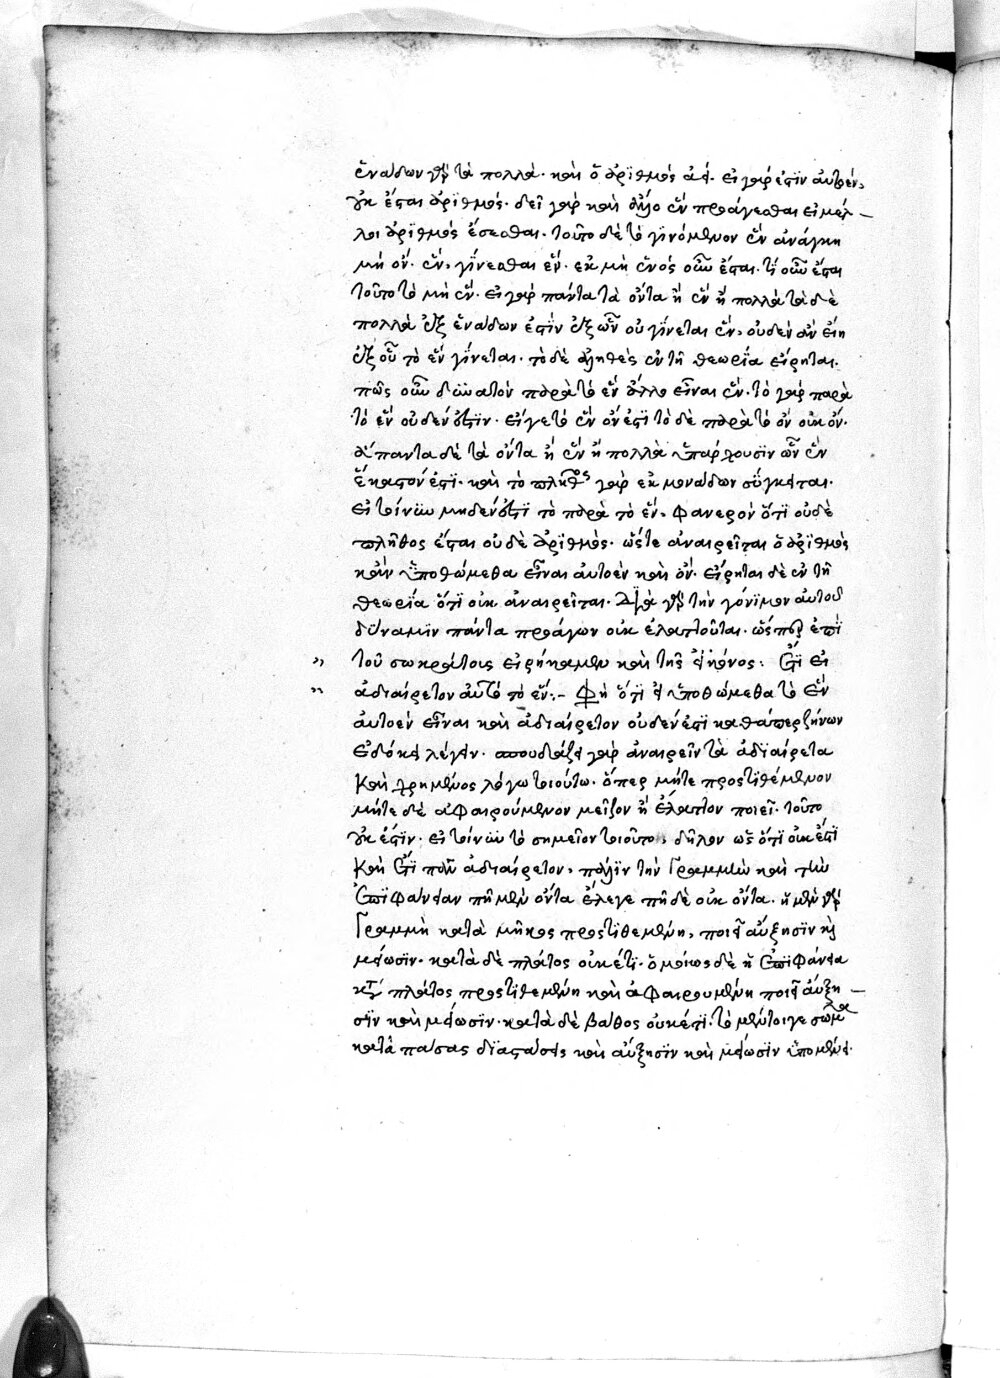 ἑνάδων γὰρ τὰ πολλά· καὶ ὁ ἀριθμὸς ἀεί. εἰ γάρ ἐστιν αὐτοέν,
οὐκ ἔσται ἀριθμός. δεῖ γὰρ καὶ ἄλλο ἓν προάγεσθαι εἰ μέλ-
λοι ἀριθμὸς ἔσεσθαι. τοῦτο δὲ τὸ γινόμενον ἓν ἀνάγκη
μὴ ὂν ἓν, γίνεσθαι ἕν. ἐκ μὴ ἑνὸς οὖν ἔσται. τί οὖν ἔσται
τοῦτο τὸ μὴ ἕν. εἰ γὰρ πάντα τὰ ὄντα ἢ ἓν ἢ πολλὰ τὰ δὲ
πολλὰ ἐξ ἑνάδων ἐστὶν ἐξ ὧν οὐ γίνεται ἕν, οὐδὲν ἂν εἴη
ἐξ οὗ τὸ ἓν γίνεται. τὸ δὲ ἀληθὲς ἐν τῇ θεωρίᾳ εἴρηται.
πῶς οὖν δυνατὸν παρὰ τὸ ἓν ἄλλο εἶναι ἕν. τὸ γὰρ παρὰ
τὸ ἓν οὐδέν ἐστιν. εἴγε τὸ ἓν ὄν ἐστι τὸ δὲ παρὰ τὸ ὂν οὐκ ὄν.
ἅπαντα δὲ τὰ ὄντα ἢ ἓν ἢ πολλὰ ὑπάρχουσιν ὧν ἓν
ἕκαστόν ἐστι. καὶ τὸ πλῆθος γὰρ ἐκ μονάδων σύγκειται.
εἰ τοίνυν μηδέν ἐστι τὸ παρὰ τὸ ἕν, φανερὸν ὅτι οὐδὲ
πλῆθος ἔσται οὐδὲ ἀριθμός. ὥστε ἀναιρεῖται ὁ ἀριθμὸς
κἂν ὑποθώμεθα εἶναι αὐτοὲν καὶ ὄν. εἴρηται δὲ ἐν τῇ
θεωρίᾳ ὅτι οὐκ ἀναιρεῖται. διὰ γὰρ τὴν γόνιμον αὐτοῦ
δύναμιν πάντα προάγων οὐκ ἐλαττοῦται. ὥσπερ ἐπὶ
τοῦ σωκράτους εἰρήκαμεν καὶ τῆς εἰκόνος: ἔτι εἰ
ἀδιαίρετον αὐτὸ τὸ ἕν:– φησὶ ὅτι εἰ ὑποθώμεθα τὸ ἓν
αὐτοὲν εἶναι καὶ ἀδιαίρετον οὐδέν ἐστι καθάπερ ζήνων
ἐδόκει λέγειν. σπουδάζει γὰρ ἀναιρεῖν τὰ ἀδιαίρετα
κεχρημένος λόγῳ τοιούτῳ. ὅπερ μήτε προστιθέμενον
μήτε δὲ ἀφαιρούμενον μεῖζον ἢ ἔλαττον ποιεῖ. τοῦτο
οὐκ ἔστιν. εἰ τοίνυν τὸ σημεῖον τοιοῦτο, δῆλον ὡς ὅτι οὐκ ἔστι
καὶ ἔτι πᾶν ἀδιαίρετον, πάλιν τὴν γραμμὴν καὶ τὴν
ἐπιφάνειαν πῇ μὲν ὄντα ἔλεγε πῇ δὲ οὐκ ὄντα. ἡ μὲν γὰρ
γραμμὴ κατὰ μῆκος προστιθεμένη, ποιεῖ αὔξησιν καὶ
μείωσιν. κατὰ δὲ πλάτος οὐκέτι. ὁμοίως δὲ ἡ ἐπιφάνεια
κατὰ πλάτος προστιθεμένη καὶ ἀφαιρουμένη ποιεῖ αὔξη-
σιν καὶ μείωσιν. κατὰ δὲ βάθος οὐκέτι. τὸ μέντοιγε σῶμα
κατὰ πάσας διαστάσεις καὶ αὔξησιν καὶ μείωσιν ὑπομένει.